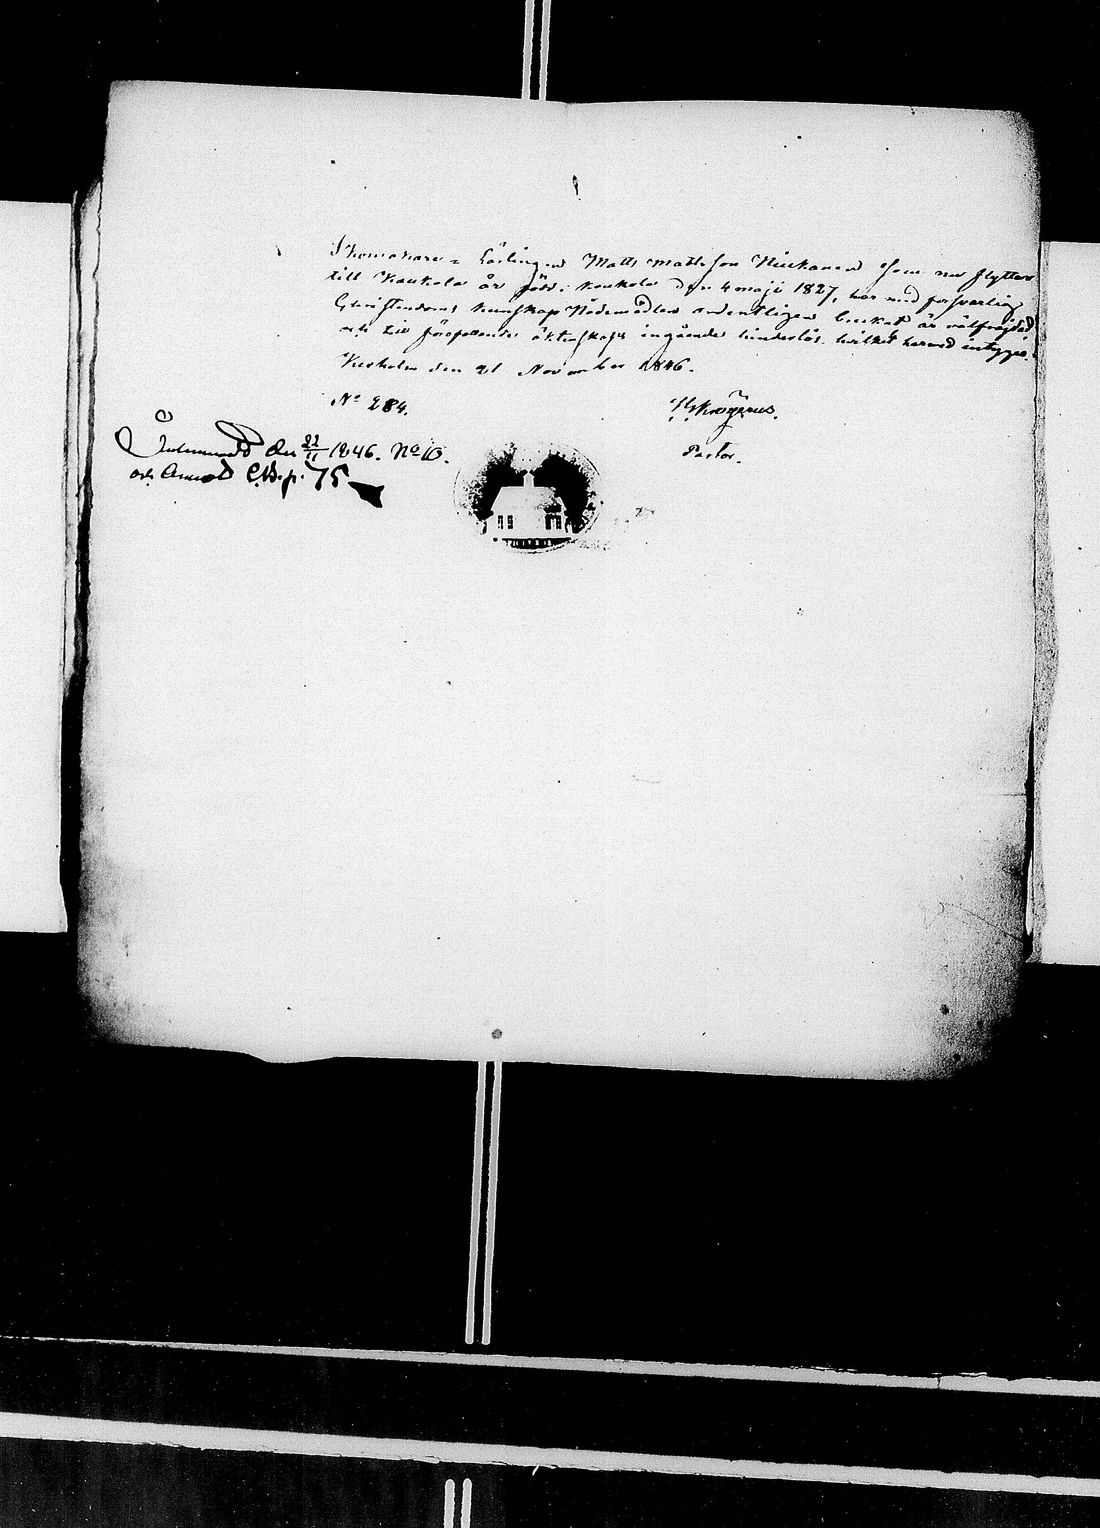 Skomakare = Lärlingen Matts Mattsson Kiukanen som nu flyttar
till Kaukola är född i Kaukola den 4 maji 1827, har med försvarlig
Christendoms kunskap Nådemedlen ordentligen brukat är välfräjdad
och till äktenskaps ingående hinderlös, hvilket härmed intygas.
Kexholm den 21 November 1846.
No 284.
Pastor.
den 22/11 1846. No 10.
och C.B. p. 75